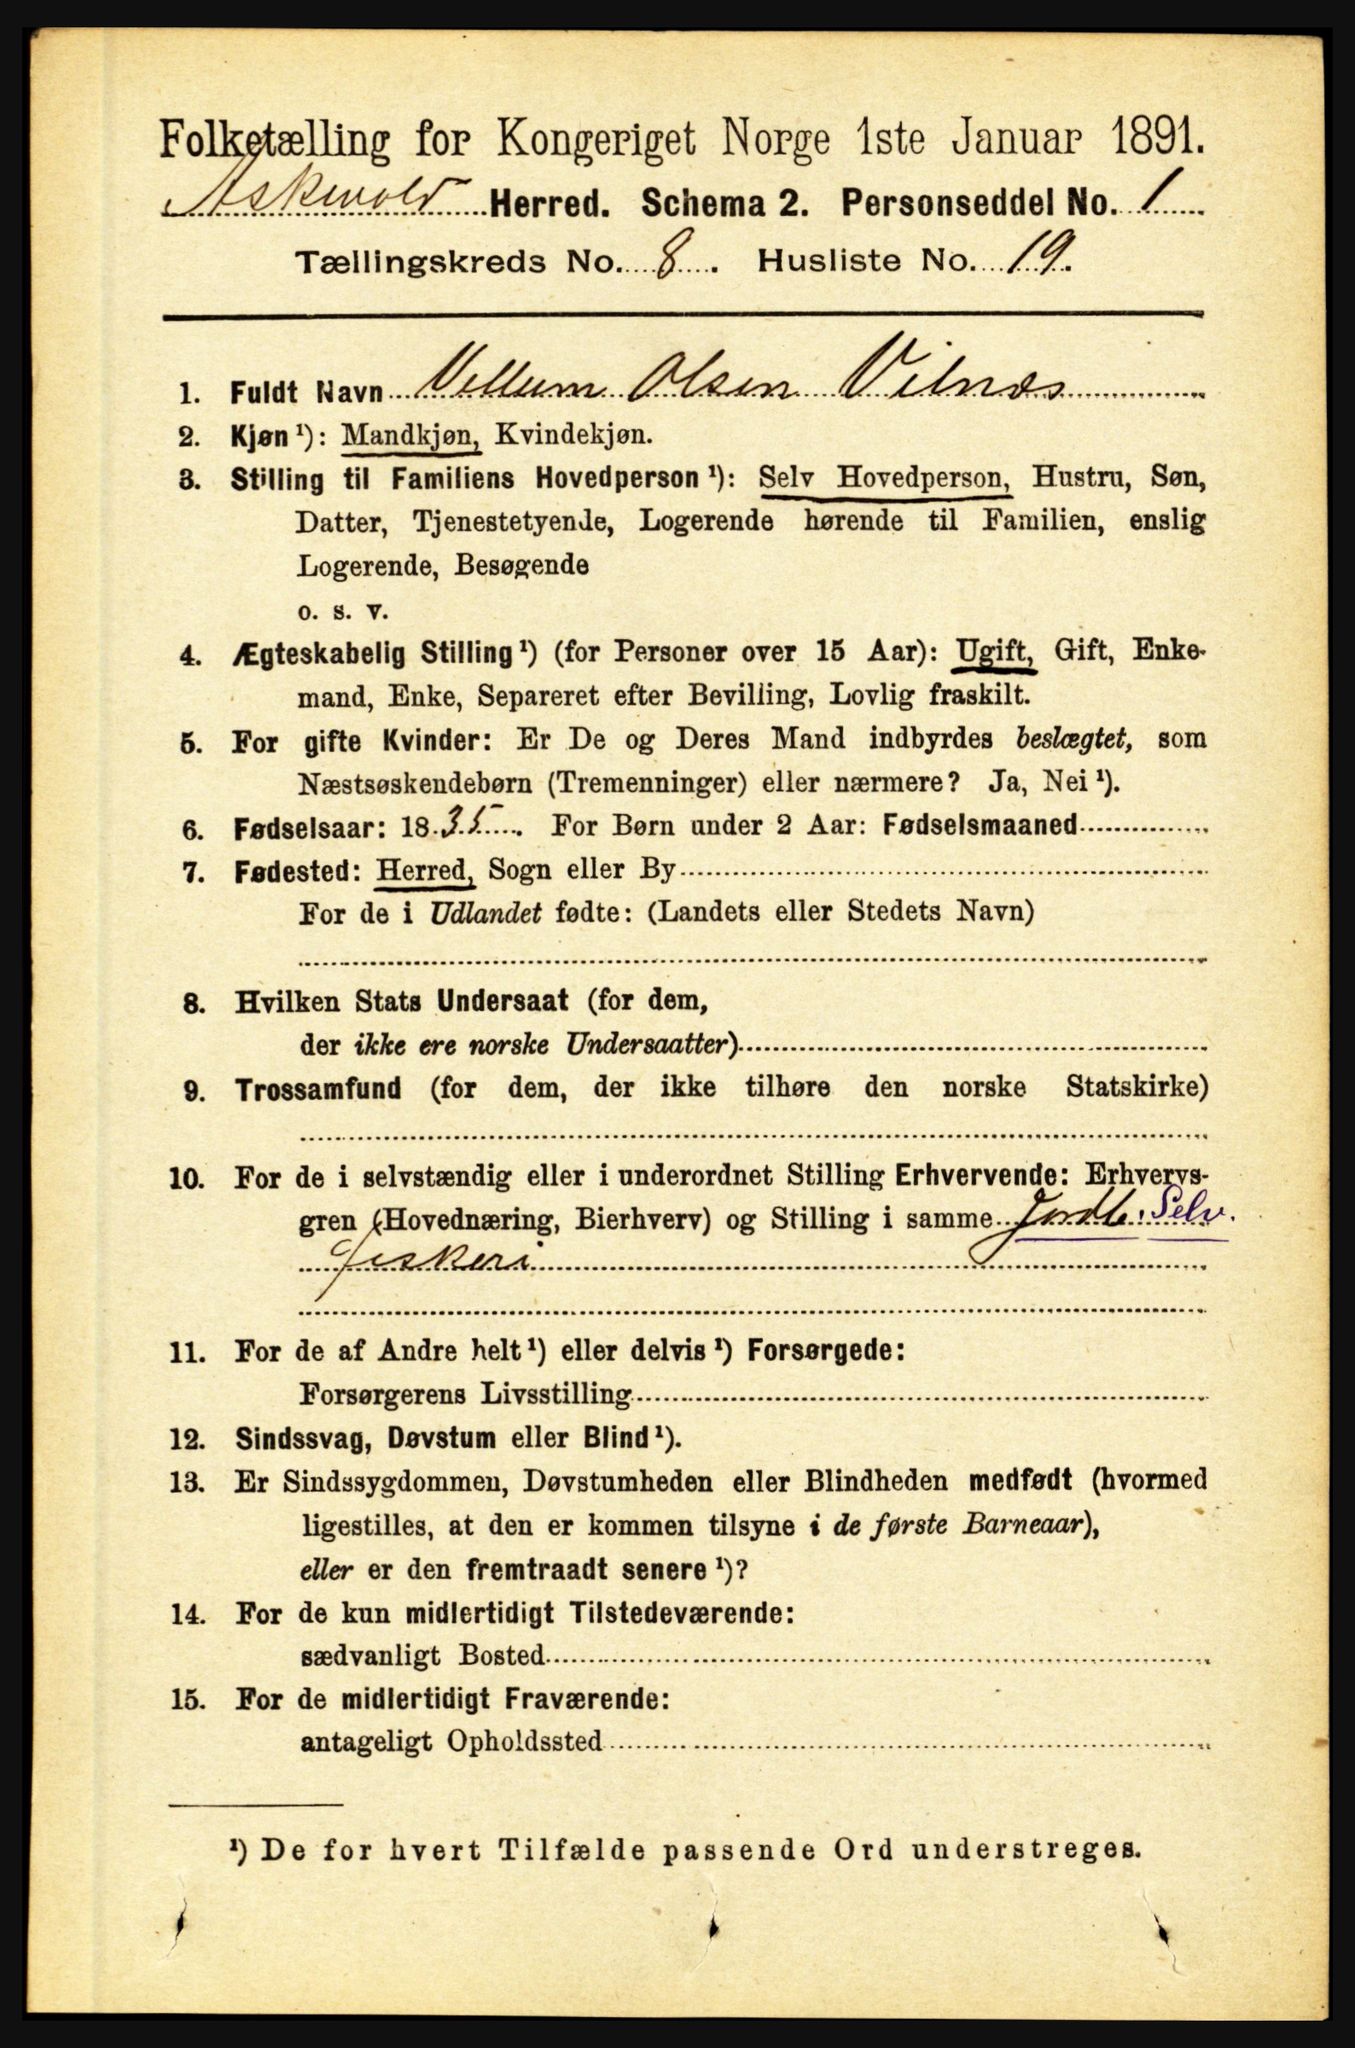 Folketælling for Kongeriget Norge 1ste Januar 1891.
Askevold Herred. Schema 2. Personseddel No. 1
Tællingskreds No. 8. Husliste No. 19.
1. Fuldt Navn Villum Olsen Vilnæs
2. Kjøn¹): Mandkjøn, Kvindekjøn.
3. Stilling til Familiens Hovedperson¹): Selv Hovedperson, Hustru, Søn,
Datter, Tjenestetyende, Logerende hørende til Familien, enslig
Logerende, Besøgende
o. s. v.
4. Ægteskabelig Stilling¹) (for Personer over 15 Aar): Ugift, Gift, Enke-
mand, Enke, Separeret efter Bevilling, Lovlig fraskilt.
5. For gifte Kvinder: Er De og Deres Mand indbyrdes beslægtet, som
Næstsøskendebørn (Tremenninger) eller nærmere? Ja, Nei¹).
6. Fødselsaar: 1835. For Børn under 2 Aar: Fødselsmaaned
7. Fødested: Herred, Sogn eller By
For de i Udlandet fødte: (Landets eller Stedets Navn)
8. Hvilken Stats Undersaat (for dem,
der ikke ere norske Undersaatter)
9. Trossamfund (for dem, der ikke tilhøre den norske Statskirke)
10. For de i selvstændig eller i underordnet Stilling Erhvervende: Erhvervs-
gren (Hovednæring, Bierhverv) og Stilling i samme Jordb. Selv.
Fiskeri
11. For de af Andre helt¹) eller delvis¹) Forsørgede:
Forsørgerens Livsstilling
12. Sindssvag, Døvstum eller Blind¹).
13. Er Sindssygdommen, Døvstumheden eller Blindheden medfødt (hvormed
ligestilles, at den er kommen tilsyne i de første Barneaar),
eller er den fremtraadt senere¹)?
14. For de kun midlertidigt Tilstedeværende:
sædvanligt Bosted
15. For de midlertidigt Fraværende:
antageligt Opholdssted
¹) De for hvert Tilfælde passende Ord understreges.